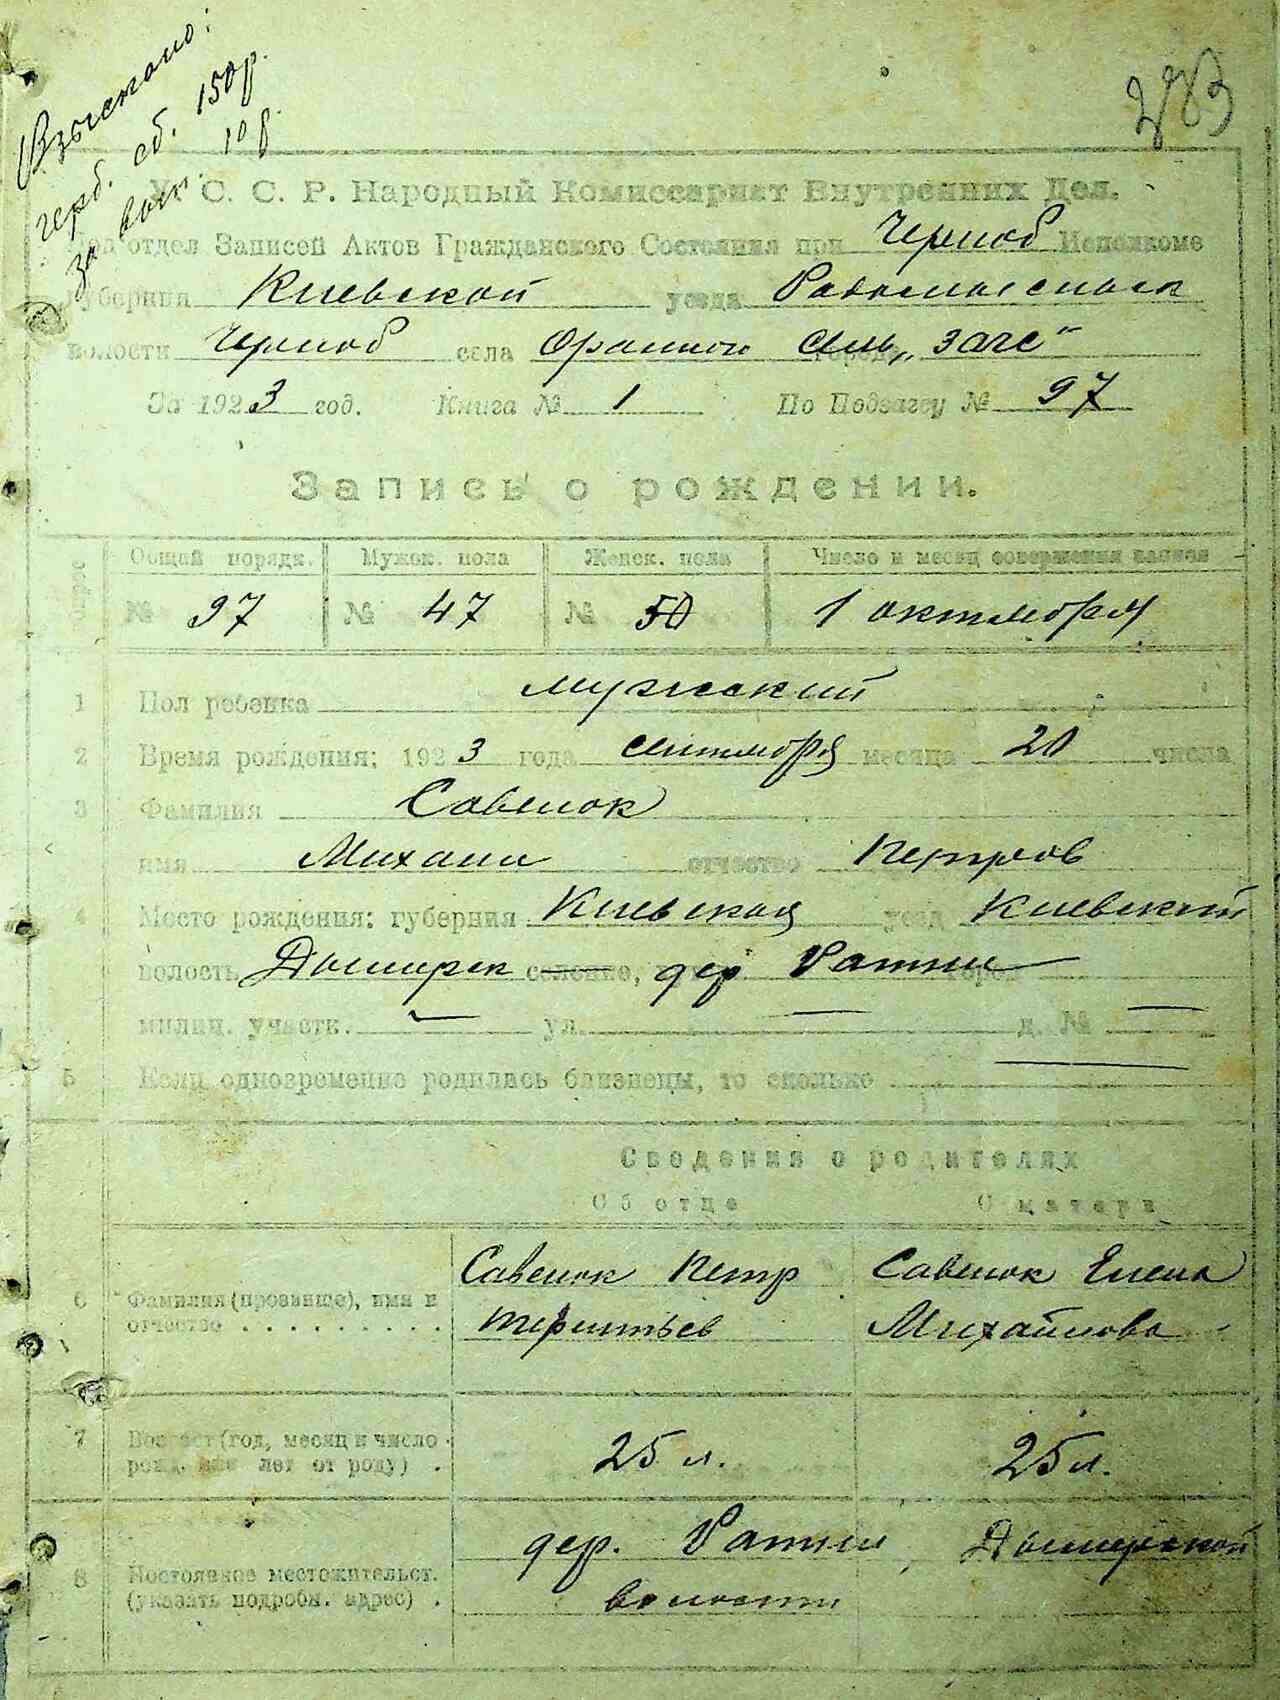 Взыскано:
герб. сб. 150 р.
за вып. 10 р.
283
У. С. С. Р. Народный Комиссариат Внутренних Дел.
Под'отдел Записей Актов Гражданского Состояния при Черноб Исполкоме
Губернии Киевской уезда Радомысльск
волости Черноб села Оранное сель „загс"
За 1923 год. Книга № 1 По Подзагсу № 97
Запись о рождении.
Общий порядк. Мужск. пола Женск. пола Число и месяц совершения записи
№ 97 № 47 № 50 1 октября
1 Пол ребенка мужеский
2 Время рождения: 1923 года сентября месяца 20 числа
3 Фамилия Савенок
имя Михаил отчество Петров
4 Место рождения: губерния Киевская уезд Киевский
волость Дымирск селение, дер
милиц. участк. — ул. — д. № —
5 Если одновременно родились близнецы, то сколько —
Сведения о родителях
Об отце О матери
6 Фамилия (прозвище), имя и Савенок Петр Савенок Елена
отчество . . . . . . . . . Терентьев Михайлова
7 Возраст (год, месяц и число
рожд. или лет от роду) . 25 л. 25 л.
дер. Дымирской
8 Постоянное местожительст.
(указать подробн. адрес) . волости